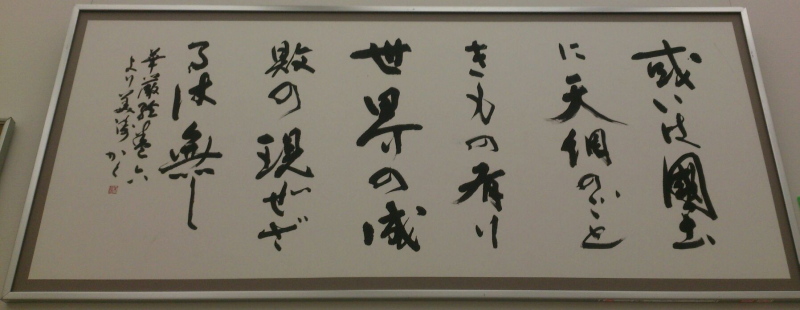 或いは國土
に天網のごと
きもの有り
世界の成
敗の現ぜざ
るは無し
華厳経巻六
より美かく